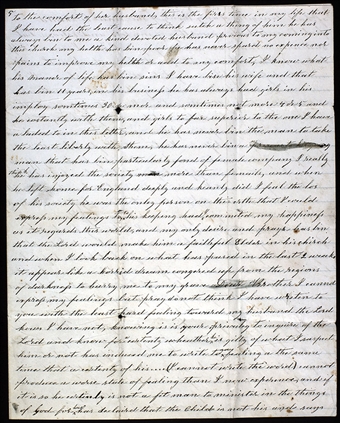 5 to the comforts of her husband, this is the first time in my life that
I have had the least cause to think such a thing of him, he has
always been to me a kind hearted husband previous to my coming into
this church my helth has bin poor he has never spared no expence nor
pains to improve my helth or add to my comfort, I know what
his manner of life has bin sins I have bin his wife and that
has bin 11 years, in his business he has always had girls in his
imploy somtimes 30 or more and sometimes not more than and
he constantly with them, and girls to far superior to the one I have
aluded to in this letter, and he has never bin the man to take
the least liberty with them, he has never bin a
man that has bin particularly fond of female company I really
he has injoyed the society more than females, and when
he left home for England deeply and keenly did I feel the los
of his society he was the only person on this erth that I could
expres my feelings to, in his keeping had I commited my happiness
as it regards this world, and my only desire and prays has bin
that the Lord would make him a faithful Elder in his church
and when I look back on what has passed in the last 2 weeks
it appears like a horrid dream congered up from the regions
of darkness to hurry me to my grave Brother I cannot
expres my feelings but pray do not think I have writen to
you with the least hard feeling toward my husband the Lord
knows I have not, knowing it is your privelig to inquire of the
Lord and know for certenty whether is gilty of what I suspect
him or not has induced me to write to feeling at the same
time that a certenty of his (I cannot write the word) cannot
produce a worse state of feeling than I now experence, and if
it is so he certenly is not a fit man to minister in the things
of God for has declared that the Child is not his and says